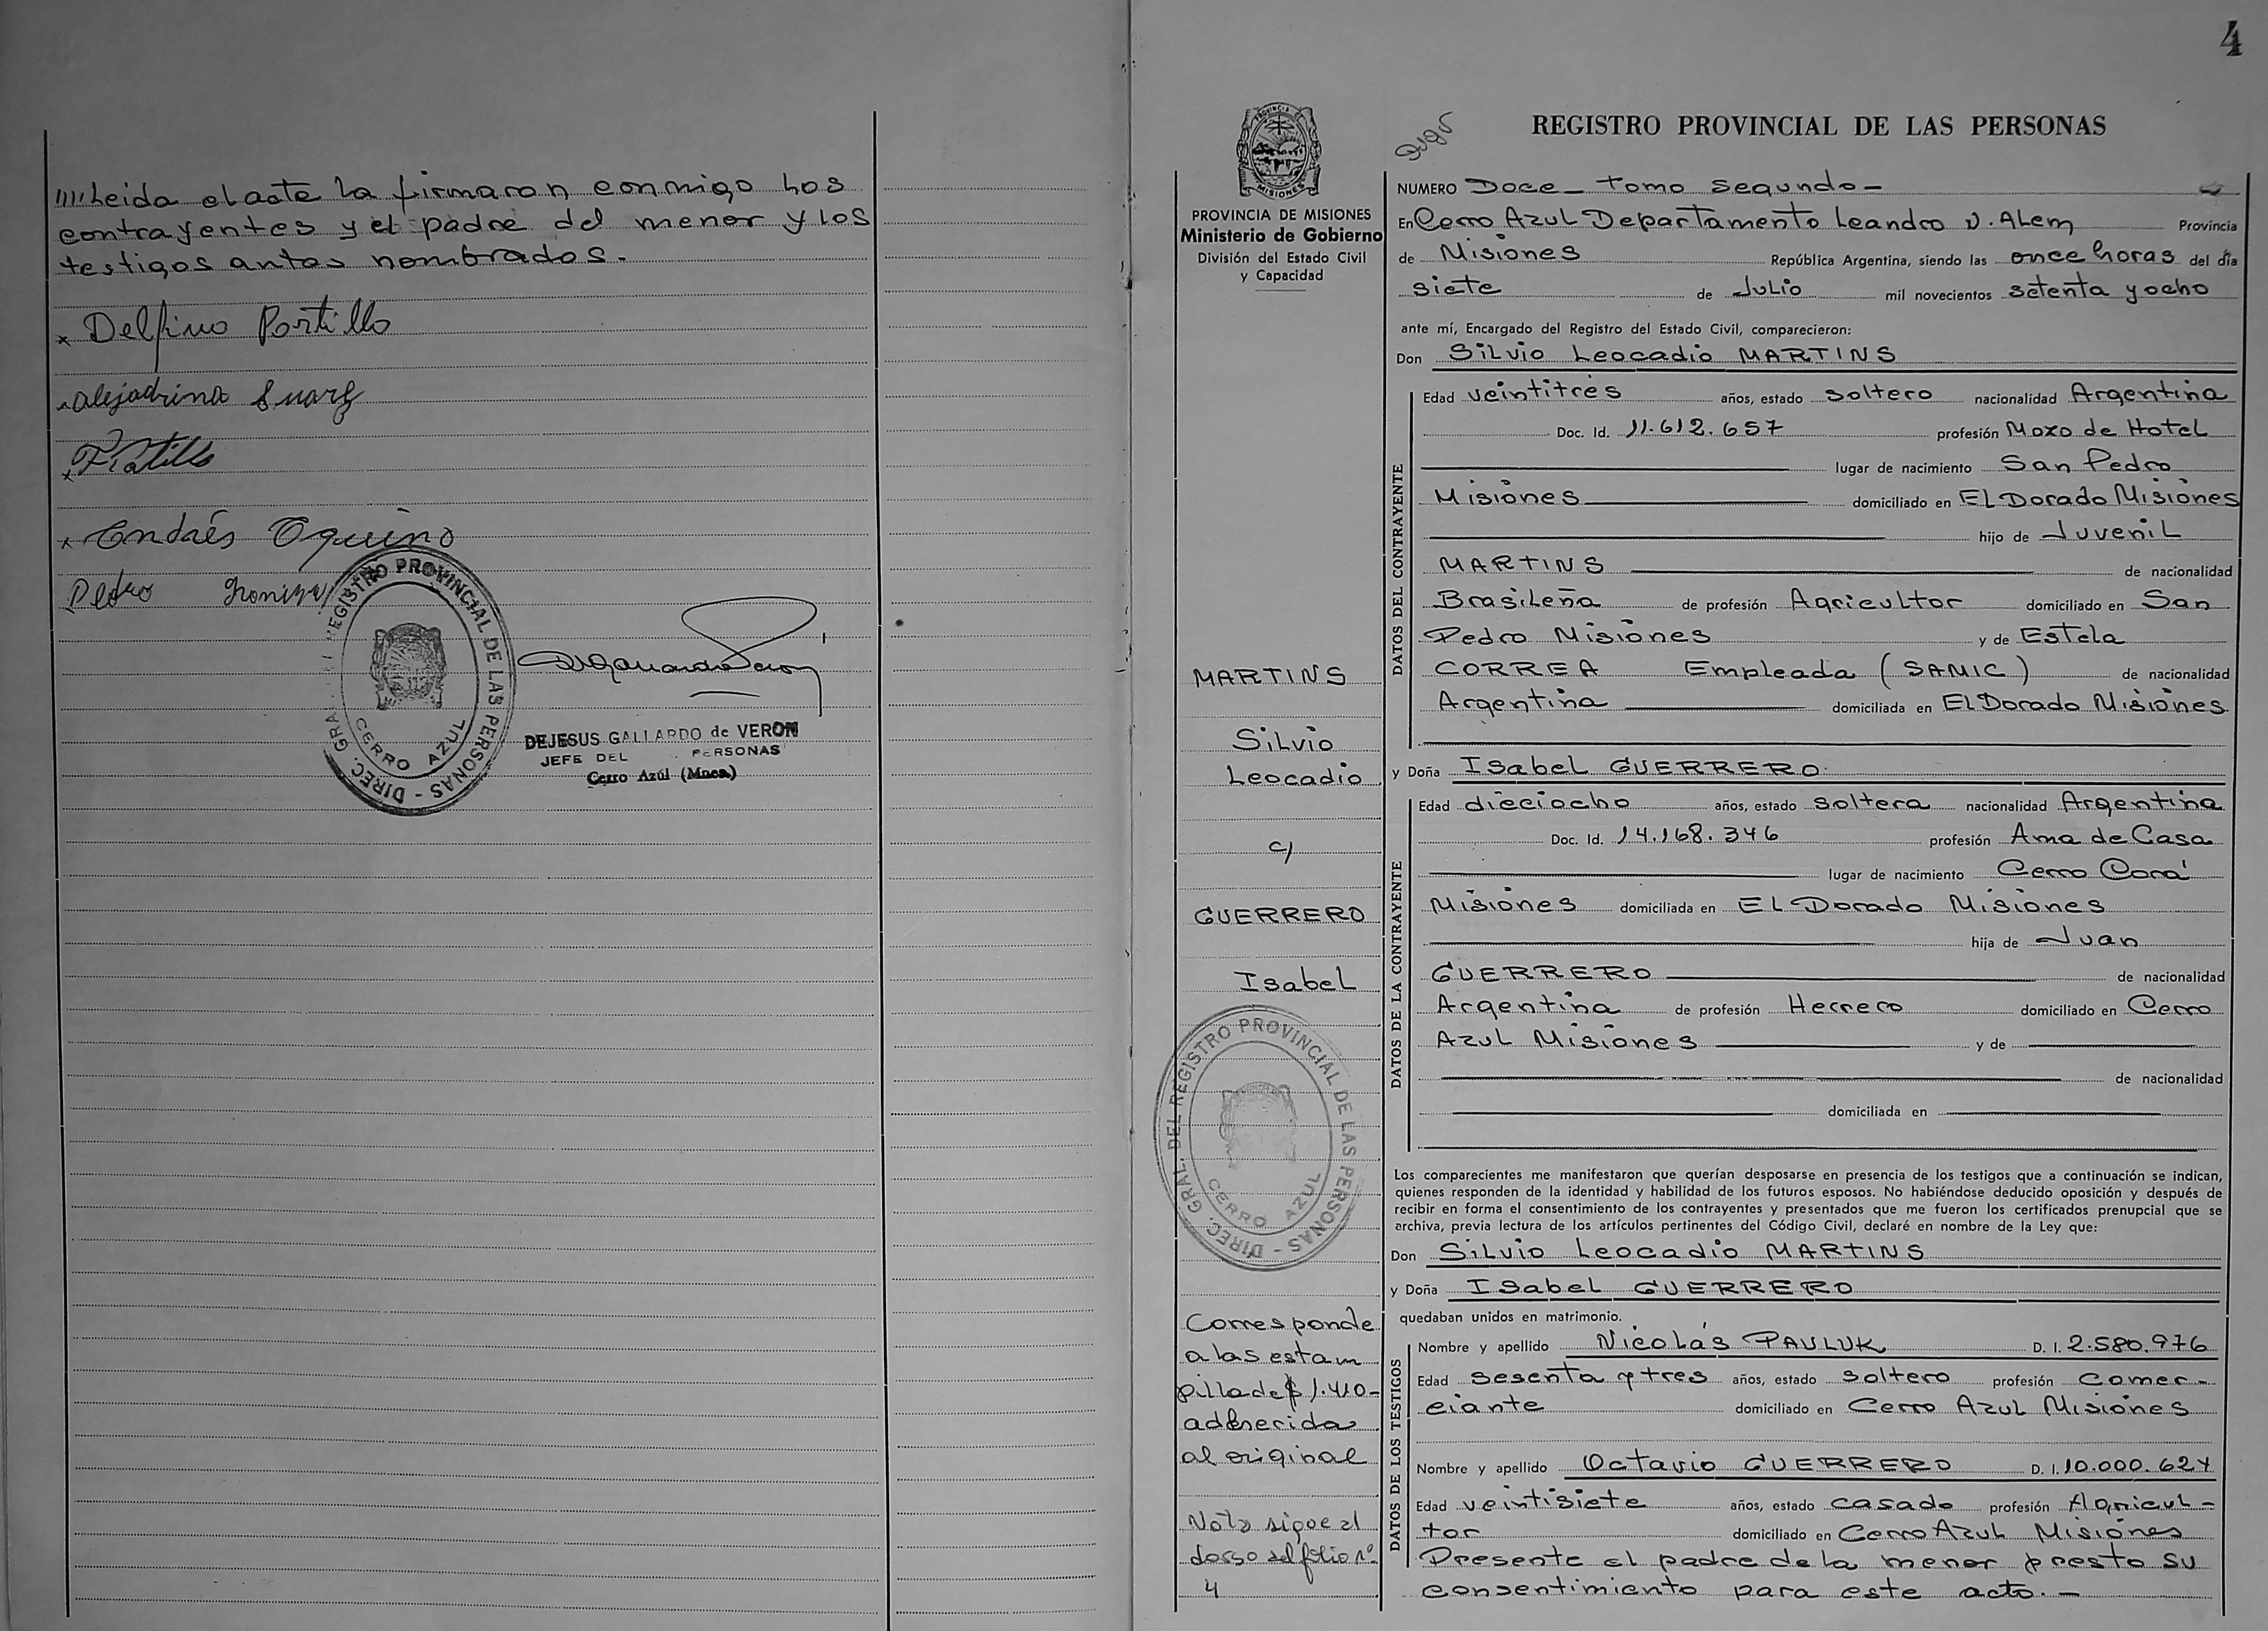 '''' Leida el acta la firmaron conmigo los
contrayentes y el padre del menor y los
testigos antes nombrados.-
x Delfino Portillo
x Alejadrina Suarez
x
x Andrés Oquino
Pedro
DIREC. GRAL. DEL REGISTRO PROVINCIAL DE LAS PERSONAS -
CERRO AZUL
DEJESUS GALLARDO de VERON
JEFE DEL PERSONAS
Cerro Azúl (Mnes.)
4
PROVINCIA DE MISIONES
Ministerio de Gobierno
División del Estado Civil
y Capacidad
MARTINS
Silvio
Leocadio
c/
GUERRERO
Isabel
DIREC. GRAL. DEL REGISTRO PROVINCIAL DE LAS PERSONAS -
CERRO AZUL
Corresponde
a las estam
pilla de $ 1.410-
adherida
al original
Nota sigue al
dorso del folio nº
4
REGISTRO PROVINCIAL DE LAS PERSONAS
NUMERO Doce - Tomo Segundo -
En Cerro Azul Departamento Leandro N. Alem Provincia
de Misiones República Argentina, siendo las once horas del día
siete de Julio mil novecientos setenta y ocho
ante mí, Encargado del Registro del Estado Civil, comparecieron:
Don Silvio Leocadio MARTINS
DATOS DEL CONTRAYENTE
Edad veintitrés años, estado soltero nacionalidad Argentina
Doc. Id. 11.612.657 profesión Mozo de Hotel
lugar de nacimiento San Pedro
Misiones domiciliado en El Dorado Misiones
hijo de Juvenil
MARTINS de nacionalidad
Brasileña de profesión Agricultor domiciliado en San
Pedro Misiones y de Estela
CORREA Empleada (SAMIC) de nacionalidad
Argentina domiciliada en El Dorado Misiones
y Doña Isabel GUERRERO
DATOS DE LA CONTRAYENTE
Edad dieciocho años, estado soltera nacionalidad Argentina
Doc. Id. 14.168.346 profesión Ama de Casa
lugar de nacimiento Cerro Corá
Misiones domiciliada en El Dorado Misiones
hija de Juan
GUERRERO de nacionalidad
Argentina de profesión Herrero domiciliado en Cerro
Azul Misiones y de
de nacionalidad
domiciliada en
Los comparecientes me manifestaron que querían desposarse en presencia de los testigos que a continuación se indican,
quienes responden de la identidad y habilidad de los futuros esposos. No habiéndose deducido oposición y después de
recibir en forma el consentimiento de los contrayentes y presentados que me fueron los certificados prenupcial que se
archiva, previa lectura de los artículos pertinentes del Código Civil, declaré en nombre de la Ley que:
Don Silvio Leocadio MARTINS
y Doña Isabel GUERRERO
quedaban unidos en matrimonio.
DATOS DE LOS TESTIGOS
Nombre y apellido Nicolás PAULUK D. I. 2.580.976
Edad sesenta y tres años, estado soltero profesión Comer-
ciante domiciliado en Cerro Azul Misiones
Nombre y apellido Octavio GUERRERO D. I. 10.000.624
Edad veintisiete años, estado casado profesión Agricul-
tor domiciliado en Cerro Azul Misiones
Presente el padre de la menor presto su
consentimiento para este acto.-